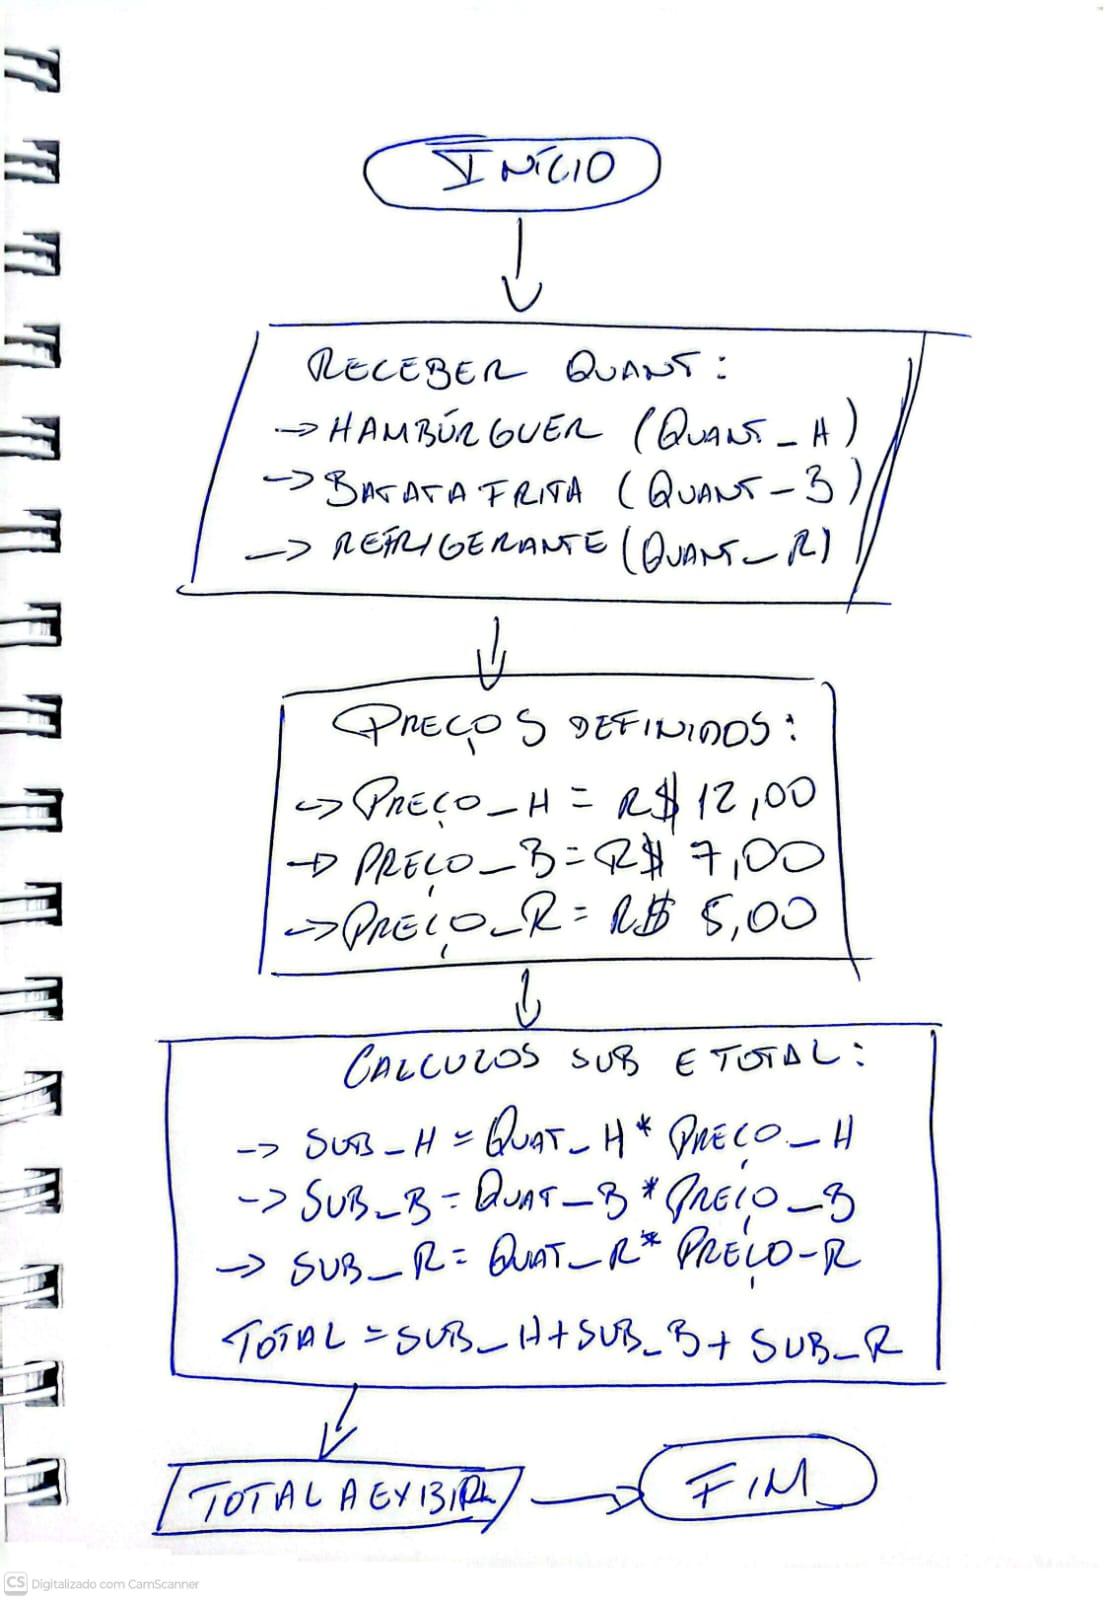 INÍCIO
RECEBER QUANT:
-> HAMBÚRGUER (QUANT_H)
-> BATATA FRITA (QUANT_B)
-> REFRIGERANTE (QUANT_R)
PREÇOS DEFINIDOS:
-> PREÇO_H = R$ 12,00
-> PREÇO_B = R$ 7,00
-> PREÇO_R = R$ 5,00
CALCULOS SUB E TOTAL:
-> SUB_H = QUAT_H * PREÇO_H
-> SUB_B = QUAT_B * PREÇO_B
-> SUB_R = QUAT_R * PREÇO_R
TOTAL = SUB_H + SUB_B + SUB_R
TOTAL A EXIBIR
FIM
CS Digitalizado com CamScanner